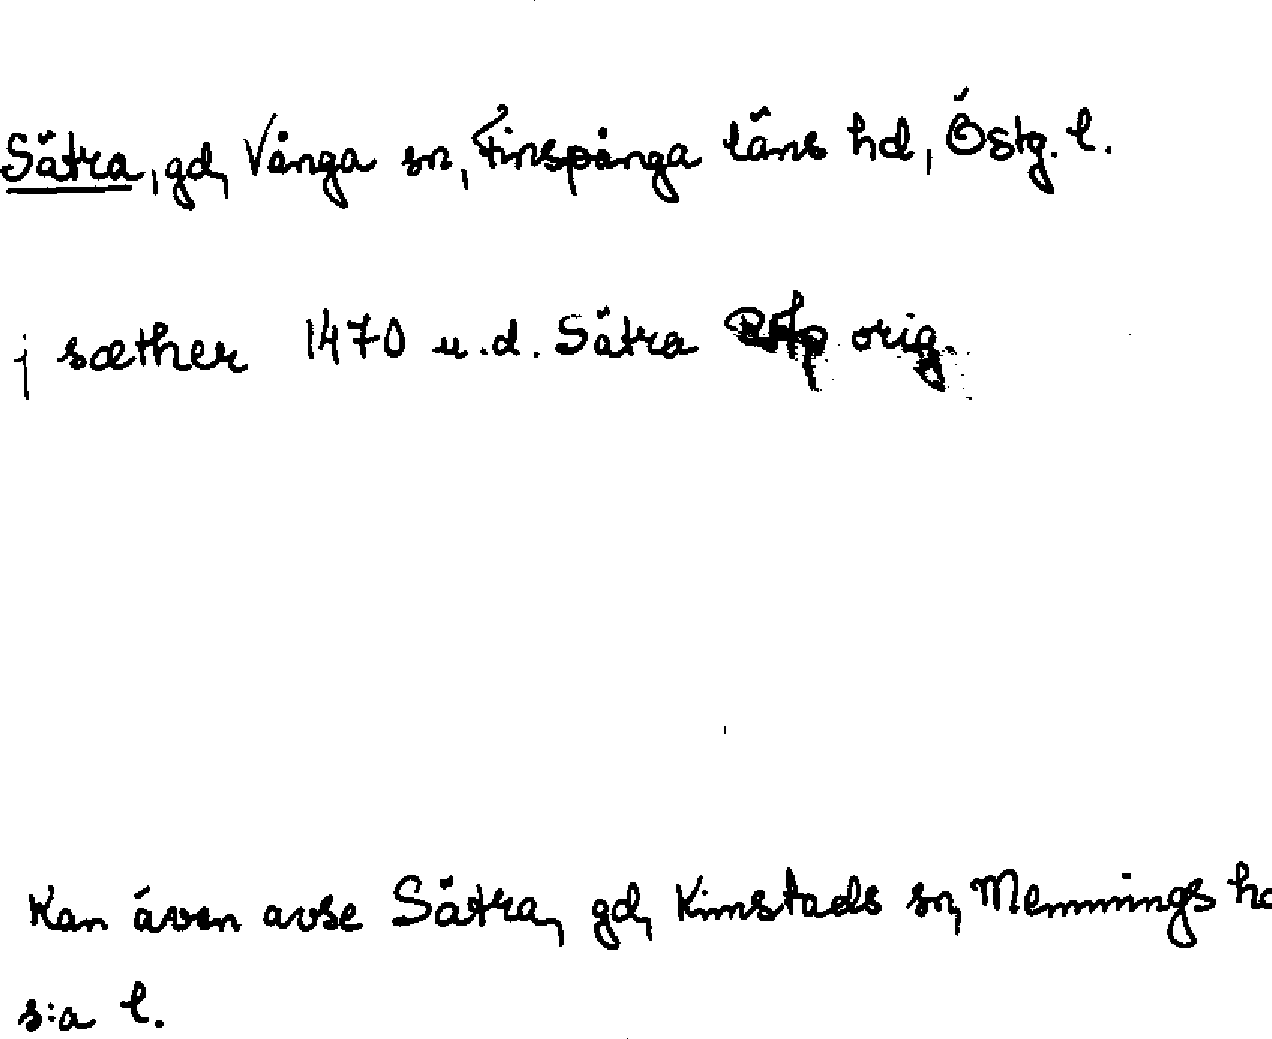 Sätra, gd, Vånga sn, Finspånga läns hd, Östg. l.
j sæther 1470 u.d. Sätra orig.
Kan även avse Sätra, gd, Kimstads sn, Memmings
s:a l.